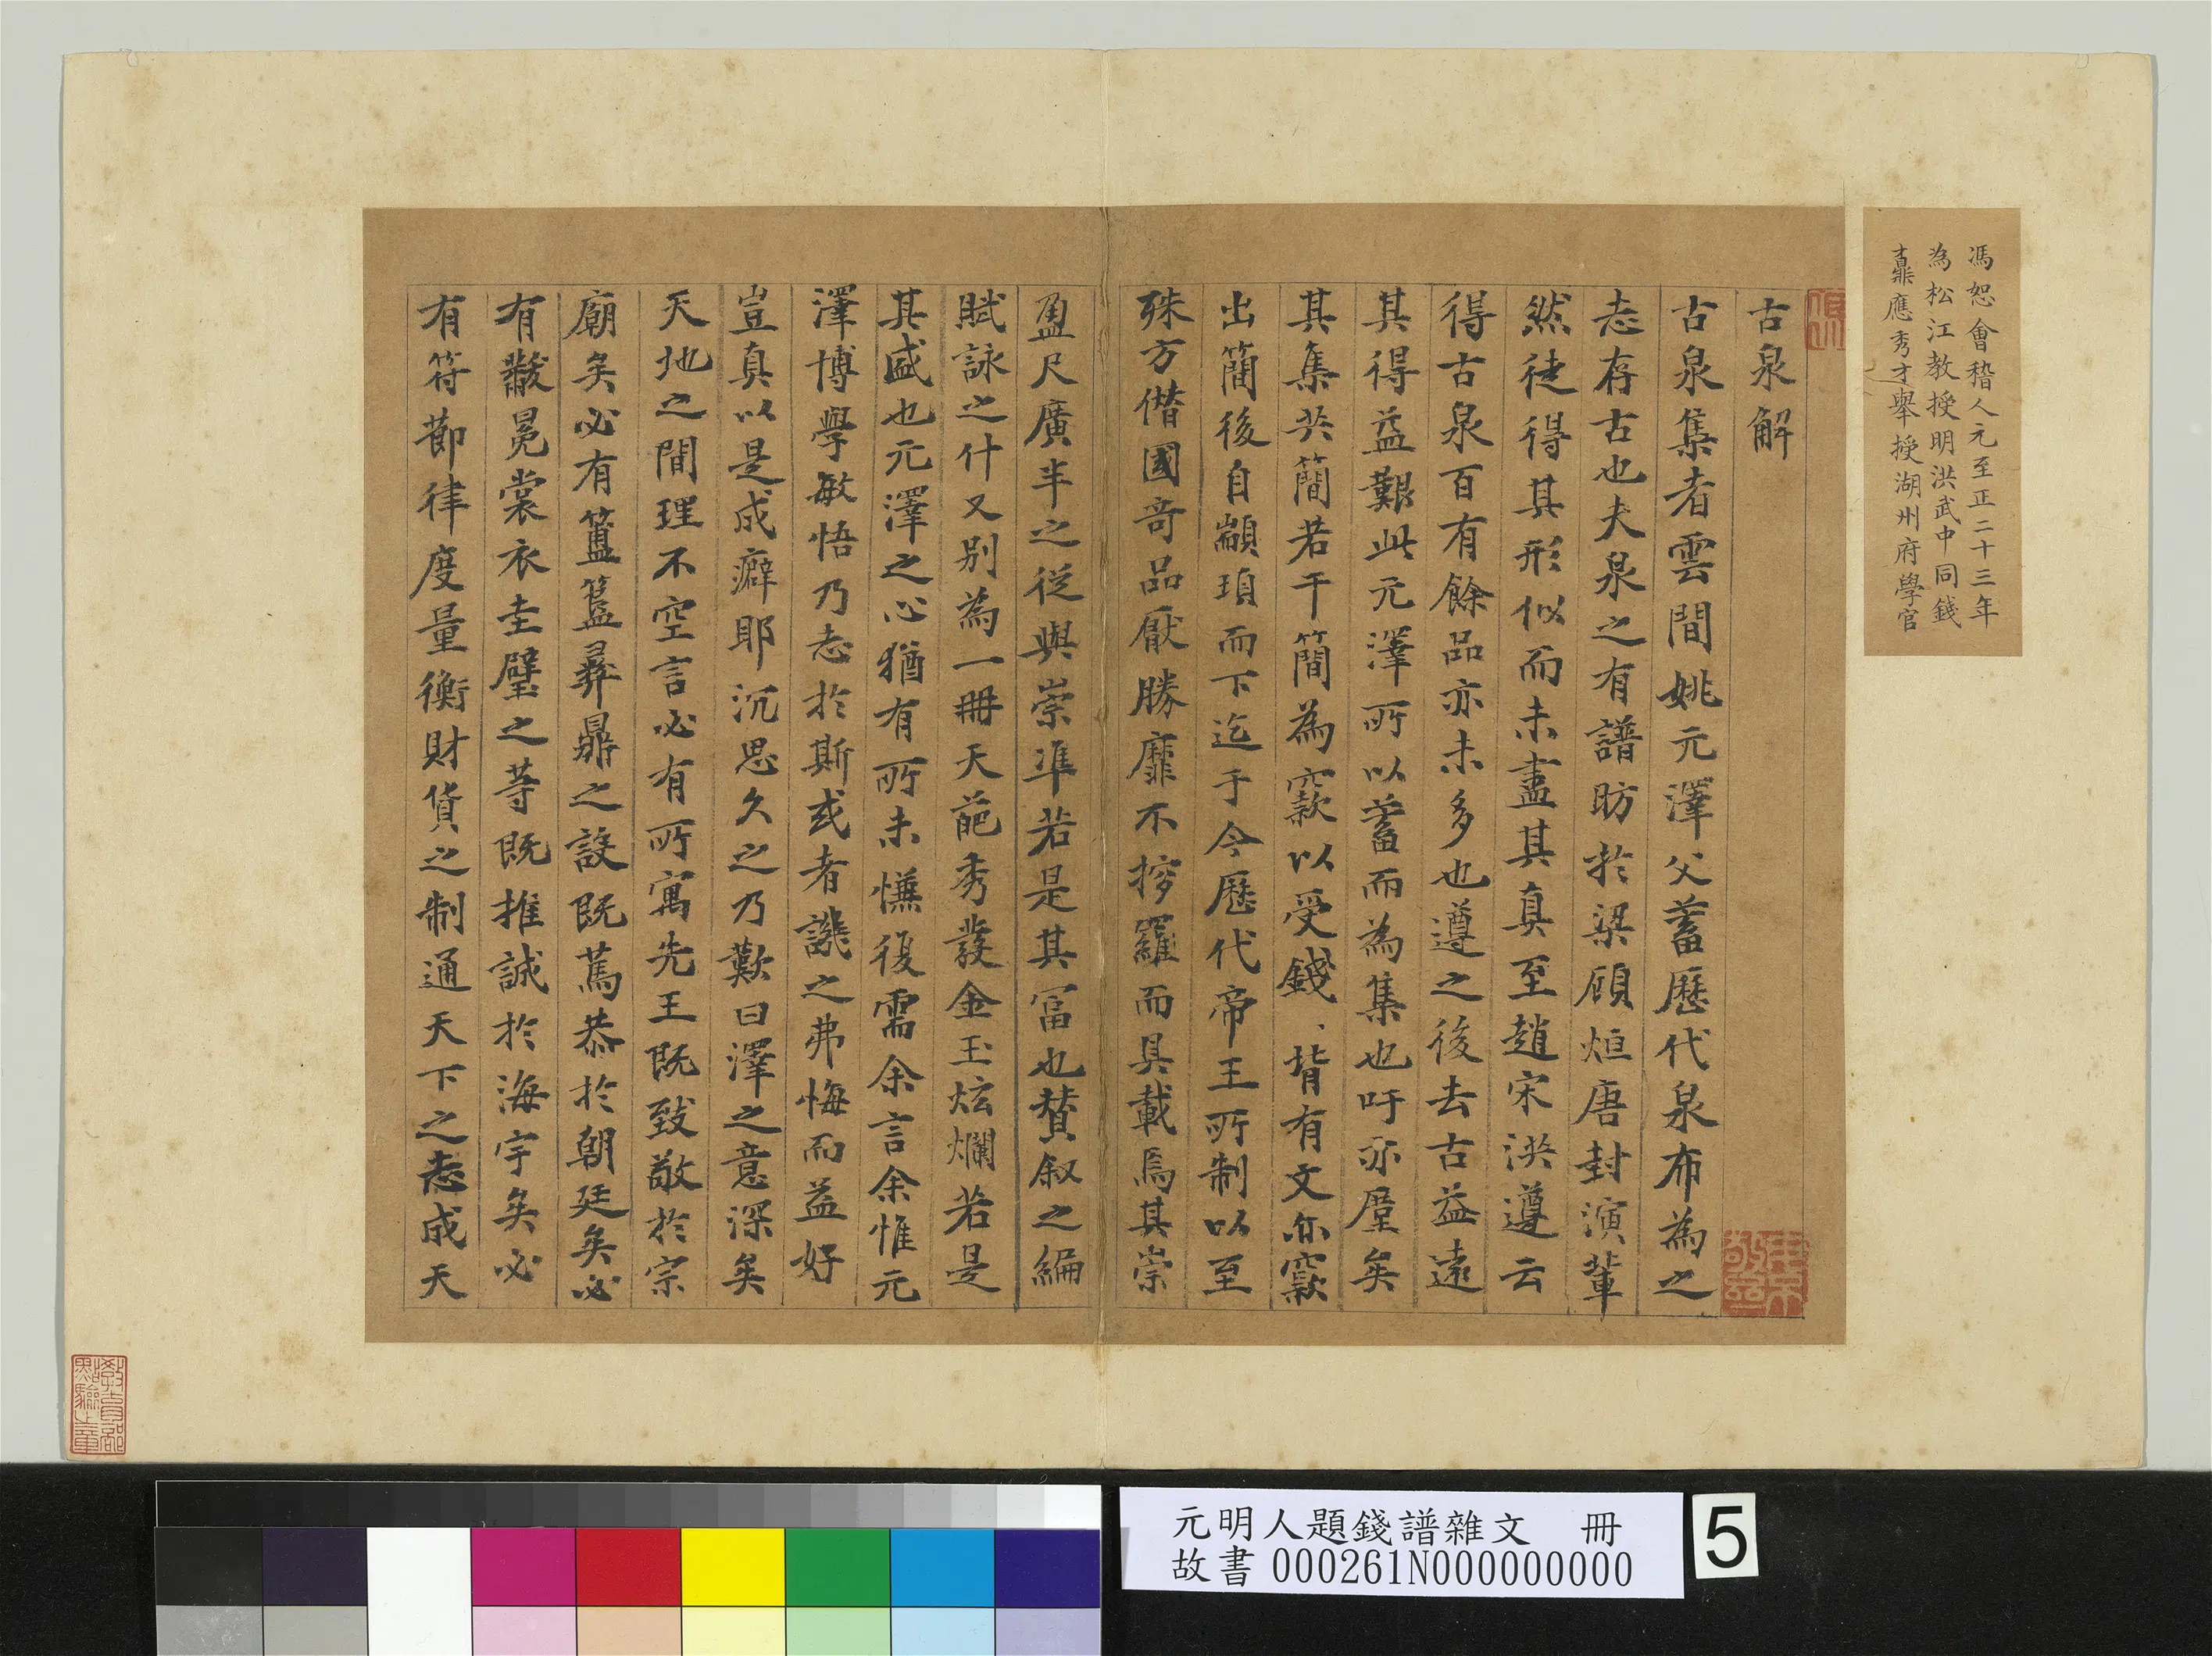 馮恕會稽人元至正二十三年
為松江教授明洪武中同錢
鼒應秀才舉授湖州府學官
古泉解
古泉集者雲間姚元澤父蓄歷代泉布為之
志存古也夫泉之有譜昉於梁顧烜唐封演輩
然徒得其形似而未盡其真至趙宋洪遵云
得古泉百有餘品亦未多也遵之後去古益遠
其得益艱此元澤所以蓄而為集也吁亦廑矣
其集共簡若干簡為窾以受錢、背有文亦窾
出簡後自顓頊而下迄于今歷代帝王所制以至
殊方僭國奇品厭勝靡不撈羅而具載焉其崇
盈尺廣半之從與崇準若是其富也贊叙之編
賦詠之什又別為一冊天葩秀發金玉炫爛若是
其盛也元澤之心猶有所未慊復需余言余惟元
澤博學敏悟乃志於斯或者譏之弗悔而益好
豈真以是成癖耶沉思久之乃歎曰澤之意深矣
天地之間理不空言必有所寓先王既致敬於宗
廟矣必有簠簋彝鼎之設既篤恭於朝廷矣必
有黻冕裳衣圭璧之等既推誠於海宇矣必
有符節律度量衡財貨之制通天下之志成天
元明人題錢譜雜文 冊
故書000261N000000000
5